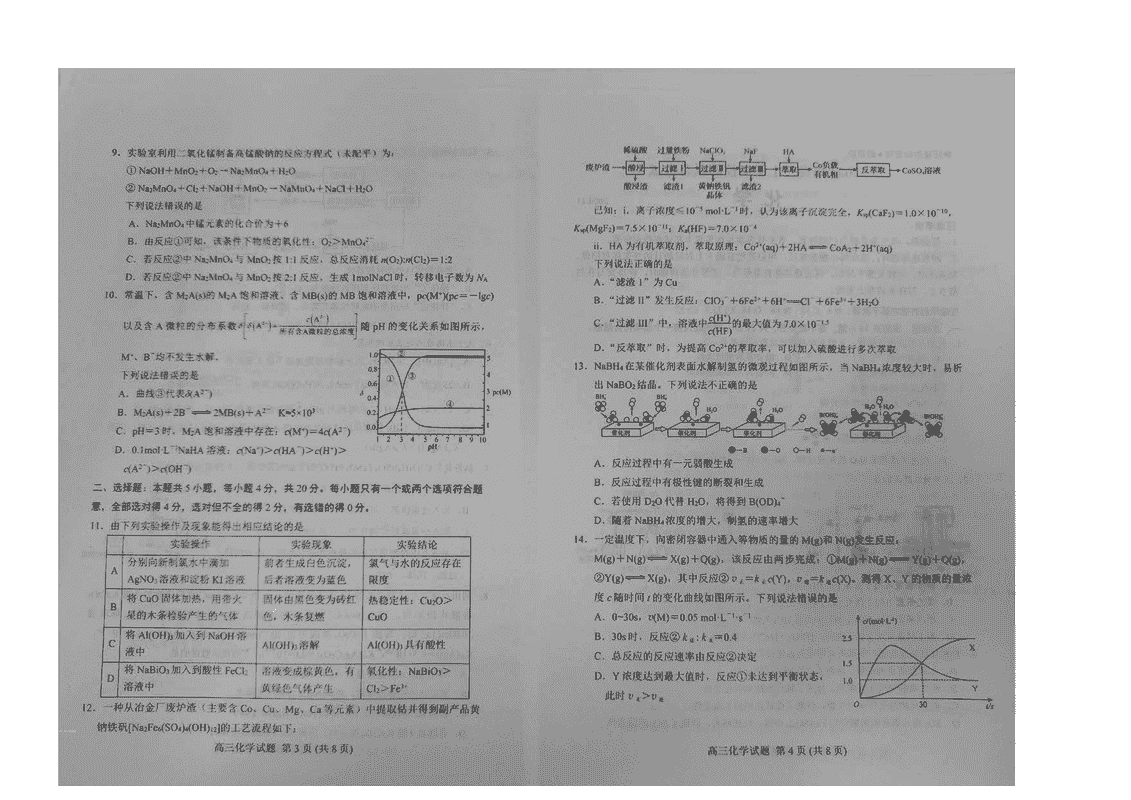 9．实验室利用二氧化锰制备高锰酸钠的反应方程式（未配平）为：
① NaOH＋MnO₂＋O₂→Na₂MnO₄＋H₂O
② Na₂MnO₄＋Cl₂＋NaOH＋MnO₂→NaMnO₄＋NaCl＋H₂O
下列说法错误的是
A．Na₂MnO₄中锰元素的化合价为＋6
B．由反应①可知，该条件下物质的氧化性：O₂>MnO₄²⁻
C．若反应②中 Na₂MnO₄与 MnO₂按 1:1 反应，总反应消耗 n(O₂):n(Cl₂)＝1:2
D．若反应②中 Na₂MnO₄与 MnO₂按 2:1 反应，生成 1molNaCl 时，转移电子数为 N_A
10．常温下，含 M₂A(s)的 M₂A 饱和溶液、含 MB(s)的 MB 饱和溶液中，pc(M⁺)(pc＝－lgc)
以及含 A 微粒的分布系数δ[δ(A²⁻)=c(A²⁻)/所有含A微粒的总浓度]随 pH 的变化关系如图所示，
M⁺、B⁻均不发生水解。
下列说法错误的是
A．曲线③代表δ(A²⁻)
B．M₂A(s)＋2B⁻⇌2MB(s)＋A²⁻ K≈5×10³
C．pH＝3 时，M₂A 饱和溶液中存在：c(M⁺)＝4c(A²⁻)
D．0.1mol·L⁻¹NaHA 溶液：c(Na⁺)>c(HA⁻)>c(H⁺)>
c(A²⁻)>c(OH⁻)
1.0
0.8
0.6
δ
0.4
0.2
0.0
① ② ③ ④
5
4
3 pc(M)
2
1
1 2 3 4 5 6 7 8 9 10
pH
二、选择题：本题共 5 小题，每小题 4 分，共 20 分。每小题只有一个或两个选项符合题
意，全部选对得 4 分，选对但不全的得 2 分，有选错的得 0 分。
11．由下列实验操作及现象能得出相应结论的是
实验操作 实验现象 实验结论
A 分别向新制氯水中滴加 前者生成白色沉淀， 氯气与水的反应存在
AgNO₃溶液和淀粉 KI 溶液 后者溶液变为蓝色 限度
B 将 CuO 固体加热，用带火 固体由黑色变为砖红 热稳定性：Cu₂O>
星的木条检验产生的气体 色，木条复燃 CuO
C 将 Al(OH)₃加入到 NaOH 溶 Al(OH)₃溶解 Al(OH)₃具有酸性
液中
D 将 NaBiO₃加入到酸性 FeCl₂ 溶液变成棕黄色，有 氧化性：NaBiO₃>
溶液中 黄绿色气体产生 Cl₂>Fe³⁺
12．一种从冶金厂废炉渣（主要含 Co、Cu、Mg、Ca 等元素）中提取钴并得到副产品黄
钠铁矾[Na₂Fe₆(SO₄)₄(OH)₁₂]的工艺流程如下：
高三化学试题 第 3 页 (共 8 页)
稀硫酸 过量铁粉 NaClO₃ NaF HA
废炉渣 酸浸 过滤Ⅰ 过滤Ⅱ 过滤Ⅲ 萃取 Co负载有机相 反萃取 CoSO₄溶液
酸浸渣 滤渣1 黄钠铁矾晶体 滤渣2
已知：i．离子浓度≤10⁻⁵ mol·L⁻¹时，认为该离子沉淀完全，Ksp(CaF₂)＝1.0×10⁻¹⁰，
Ksp(MgF₂)＝7.5×10⁻¹¹；Ka(HF)＝7.0×10⁻⁴
ii．HA 为有机萃取剂，萃取原理：Co²⁺(aq)＋2HA⇌CoA₂＋2H⁺(aq)
下列说法正确的是
A．“滤渣 1”为 Cu
B．“过滤 II”发生反应：ClO₃⁻＋6Fe²⁺＋6H⁺═Cl⁻＋6Fe³⁺＋3H₂O
C．“过滤 III”中，溶液中c(H⁺)/c(HF)的最大值为 7.0×10⁻¹·⁵
D．“反萃取”时，为提高 Co²⁺的萃取率，可以加入硫酸进行多次萃取
13．NaBH₄在某催化剂表面水解制氢的微观过程如图所示，当 NaBH₄浓度较大时，易析
出 NaBO₂结晶。下列说法不正确的是
BH₄⁻ BH₄⁻ H₂O H₂O H₂O B(OH)₄⁻ H₂O B(OH)₄⁻
催化剂 催化剂 催化剂 催化剂
—B —O —H —e⁻
A．反应过程中有一元弱酸生成
B．反应过程中有极性键的断裂和生成
C．若使用 D₂O 代替 H₂O，将得到 B(OD)₄⁻
D．随着 NaBH₄浓度的增大，制氢的速率增大
14．一定温度下，向密闭容器中通入等物质的量的 M(g)和 N(g)发生反应：
M(g)＋N(g)⇌X(g)＋Q(g)，该反应由两步完成：①M(g)＋N(g)⇌Y(g)＋Q(g)，
②Y(g)⇌X(g)，其中反应②υ正＝k正c(Y)，υ逆＝k逆c(X)。测得 X、Y 的物质的量浓
度 c 随时间 t 的变化曲线如图所示。下列说法错误的是
A．0~30s，υ(M)＝0.05 mol·L⁻¹·s⁻¹
B．30s 时，反应②k正:k逆＝0.4
C．总反应的反应速率由反应②决定
D．Y 浓度达到最大值时，反应①未达到平衡状态，
此时υ正>υ逆
c/(mol·L⁻¹)
2.5
X
1.5
1.0
Y
O 30 t/s
高三化学试题 第 4 页 (共 8 页)